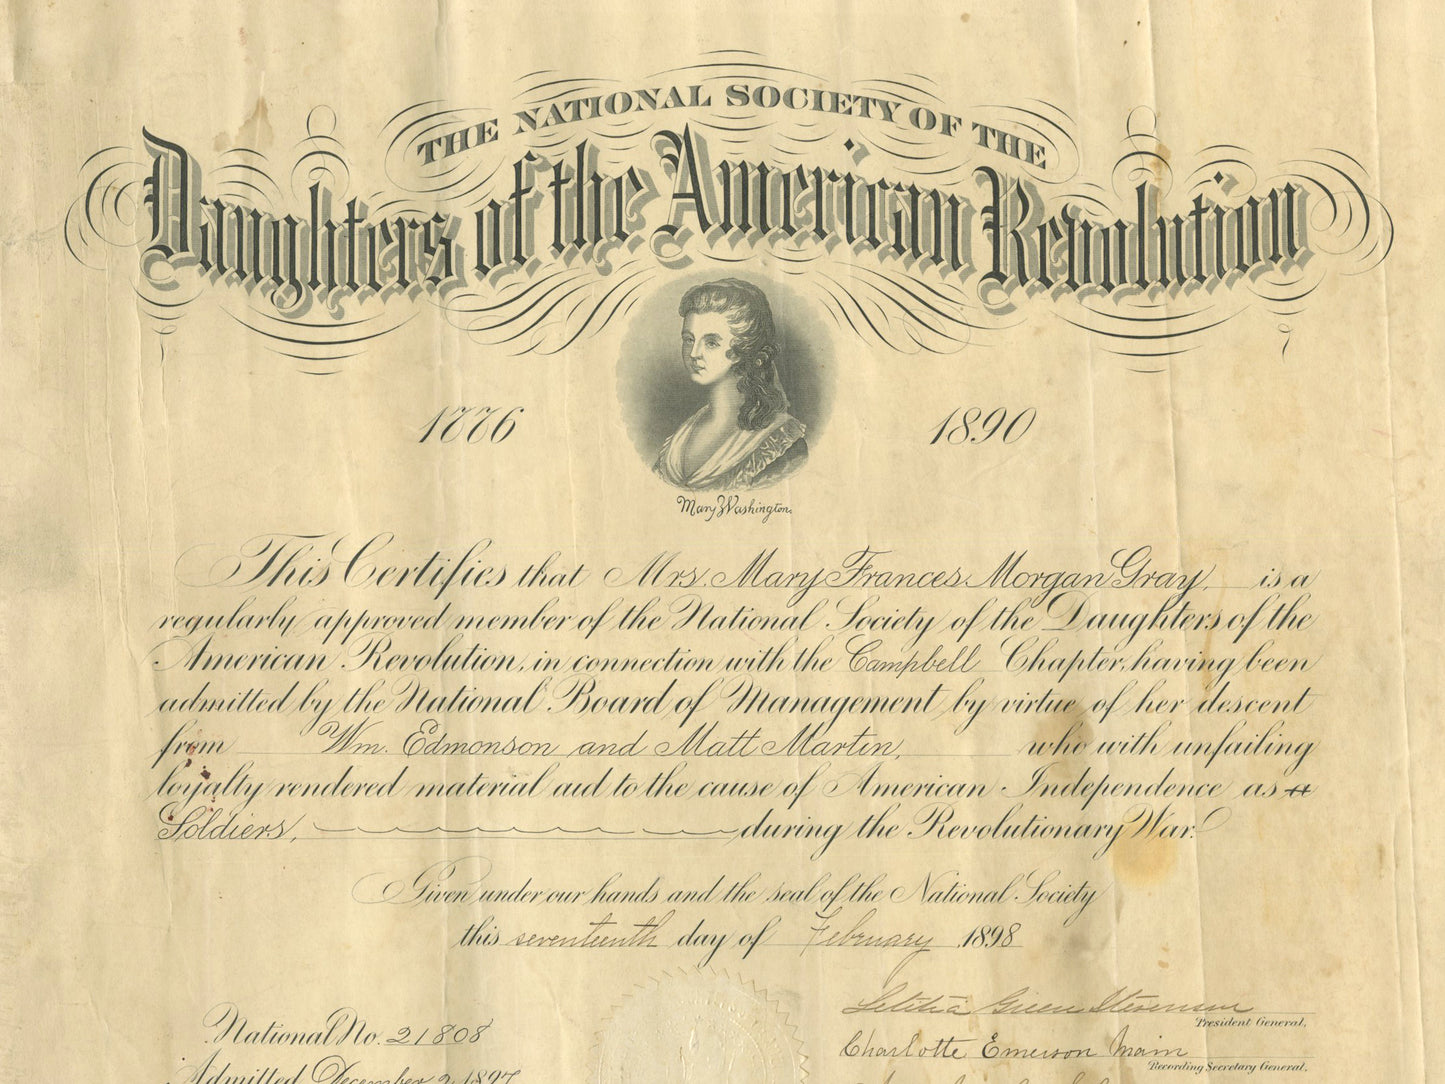 THE NATIONAL SOCIETY OF THE
Daughters of the American Revolution
1776
1890
Mary Washington.
This Certifies that Mrs. Mary Frances Morgan Gray, is a
regularly approved member of the National Society of the Daughters of the
American Revolution, in connection with the Campbell Chapter, having been
admitted by the National Board of Management by virtue of her descent
from Wm. Edmonson and Matt Martin, who with unfailing
loyalty rendered material aid to the cause of American Independence as a
Soldiers, during the Revolutionary War.
Given under our hands and the seal of the National Society
this seventeenth day of February 1898
Letitia Green Stevenson
President General,
National No. 21808
Charlotte Emerson Main
Recording Secretary General,
Admitted December 2 1897